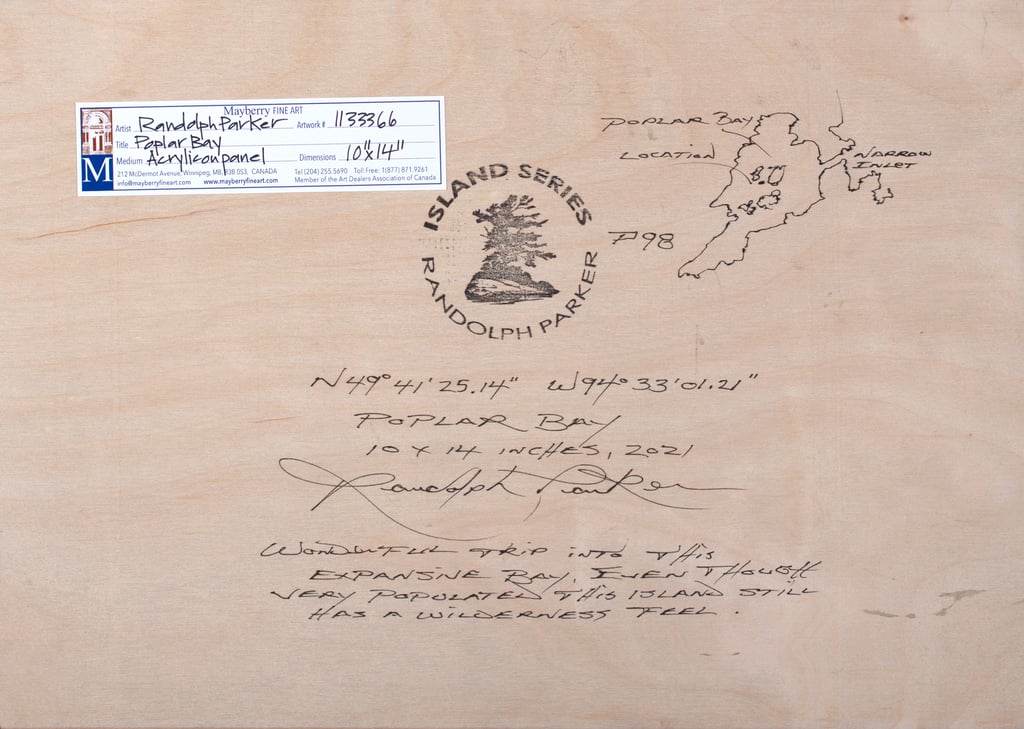 Mayberry FINE ART
Artist Randolph Parker Artwork # 1133366
Title Poplar Bay
Medium Acrylic on panel Dimensions 10"x14"
212 McDermot Avenue, Winnipeg, MB, R3B 0S3, CANADA Tel (204) 255.5690 Toll Free: 1(877) 871.9261
info@mayberryfineart.com www.mayberryfineart.com Member of the Art Dealers Association of Canada
M
POPLAR BAY
LOCATION
NARROW
INLET
P98
ISLAND SERIES
RANDOLPH PARKER
N49° 41' 25.14" W94° 33' 01.21"
POPLAR BAY
10 X 14 INCHES, 2021
Randolph Parker
WONDERFUL TRIP INTO THIS
EXPANSINE BAY. EVEN THOUGH
VERY POPULATED THIS ISLAND STILL
HAS A WILDERNESS FEEL.